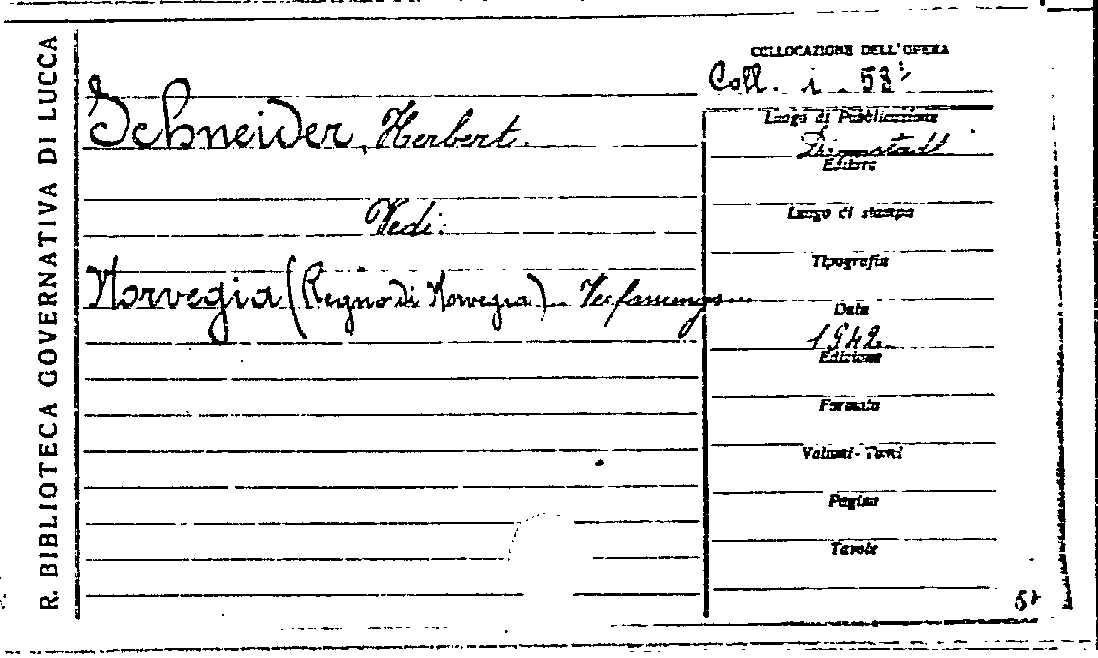 R. BIBLIOTECA GOVERNATIVA DI LUCCA
COLLOCAZIONE DELL'OPERA
Coll. i. 58
Schneider, Herbert.
Vedi:
Norvegia (Regno di Norvegia) - Verfassungs...
Luogo di Pubblicazione
Editore
Luogo di stampa
Tipografia
Data
1942
Edizione
Formato
Volumi-Tomi
Pagine
Tavole